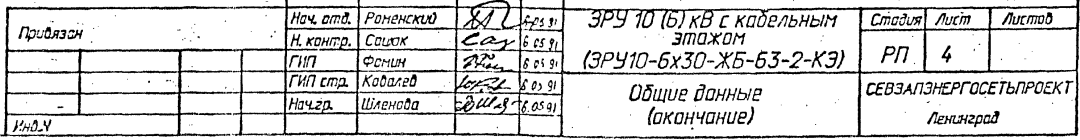 Привязан
Инв.№
Нач. отд. Раменский 6.05.91
Н. контр. Сацюк 6 05 91
ГИП Фомин 6 05 91
ГИП стр. Ковалев 6 05 91
Нач.гр. Шленова 6.05.91
ЗРУ 10 (6) кВ с кабельным
этажом
(ЗРУ10-6х30-ЖБ-63-2-КЭ)
Общие данные
(окончание)
Стадия Лист Листов
РП 4
СЕВЗАПЭНЕРГОСЕТЬПРОЕКТ
Ленинград